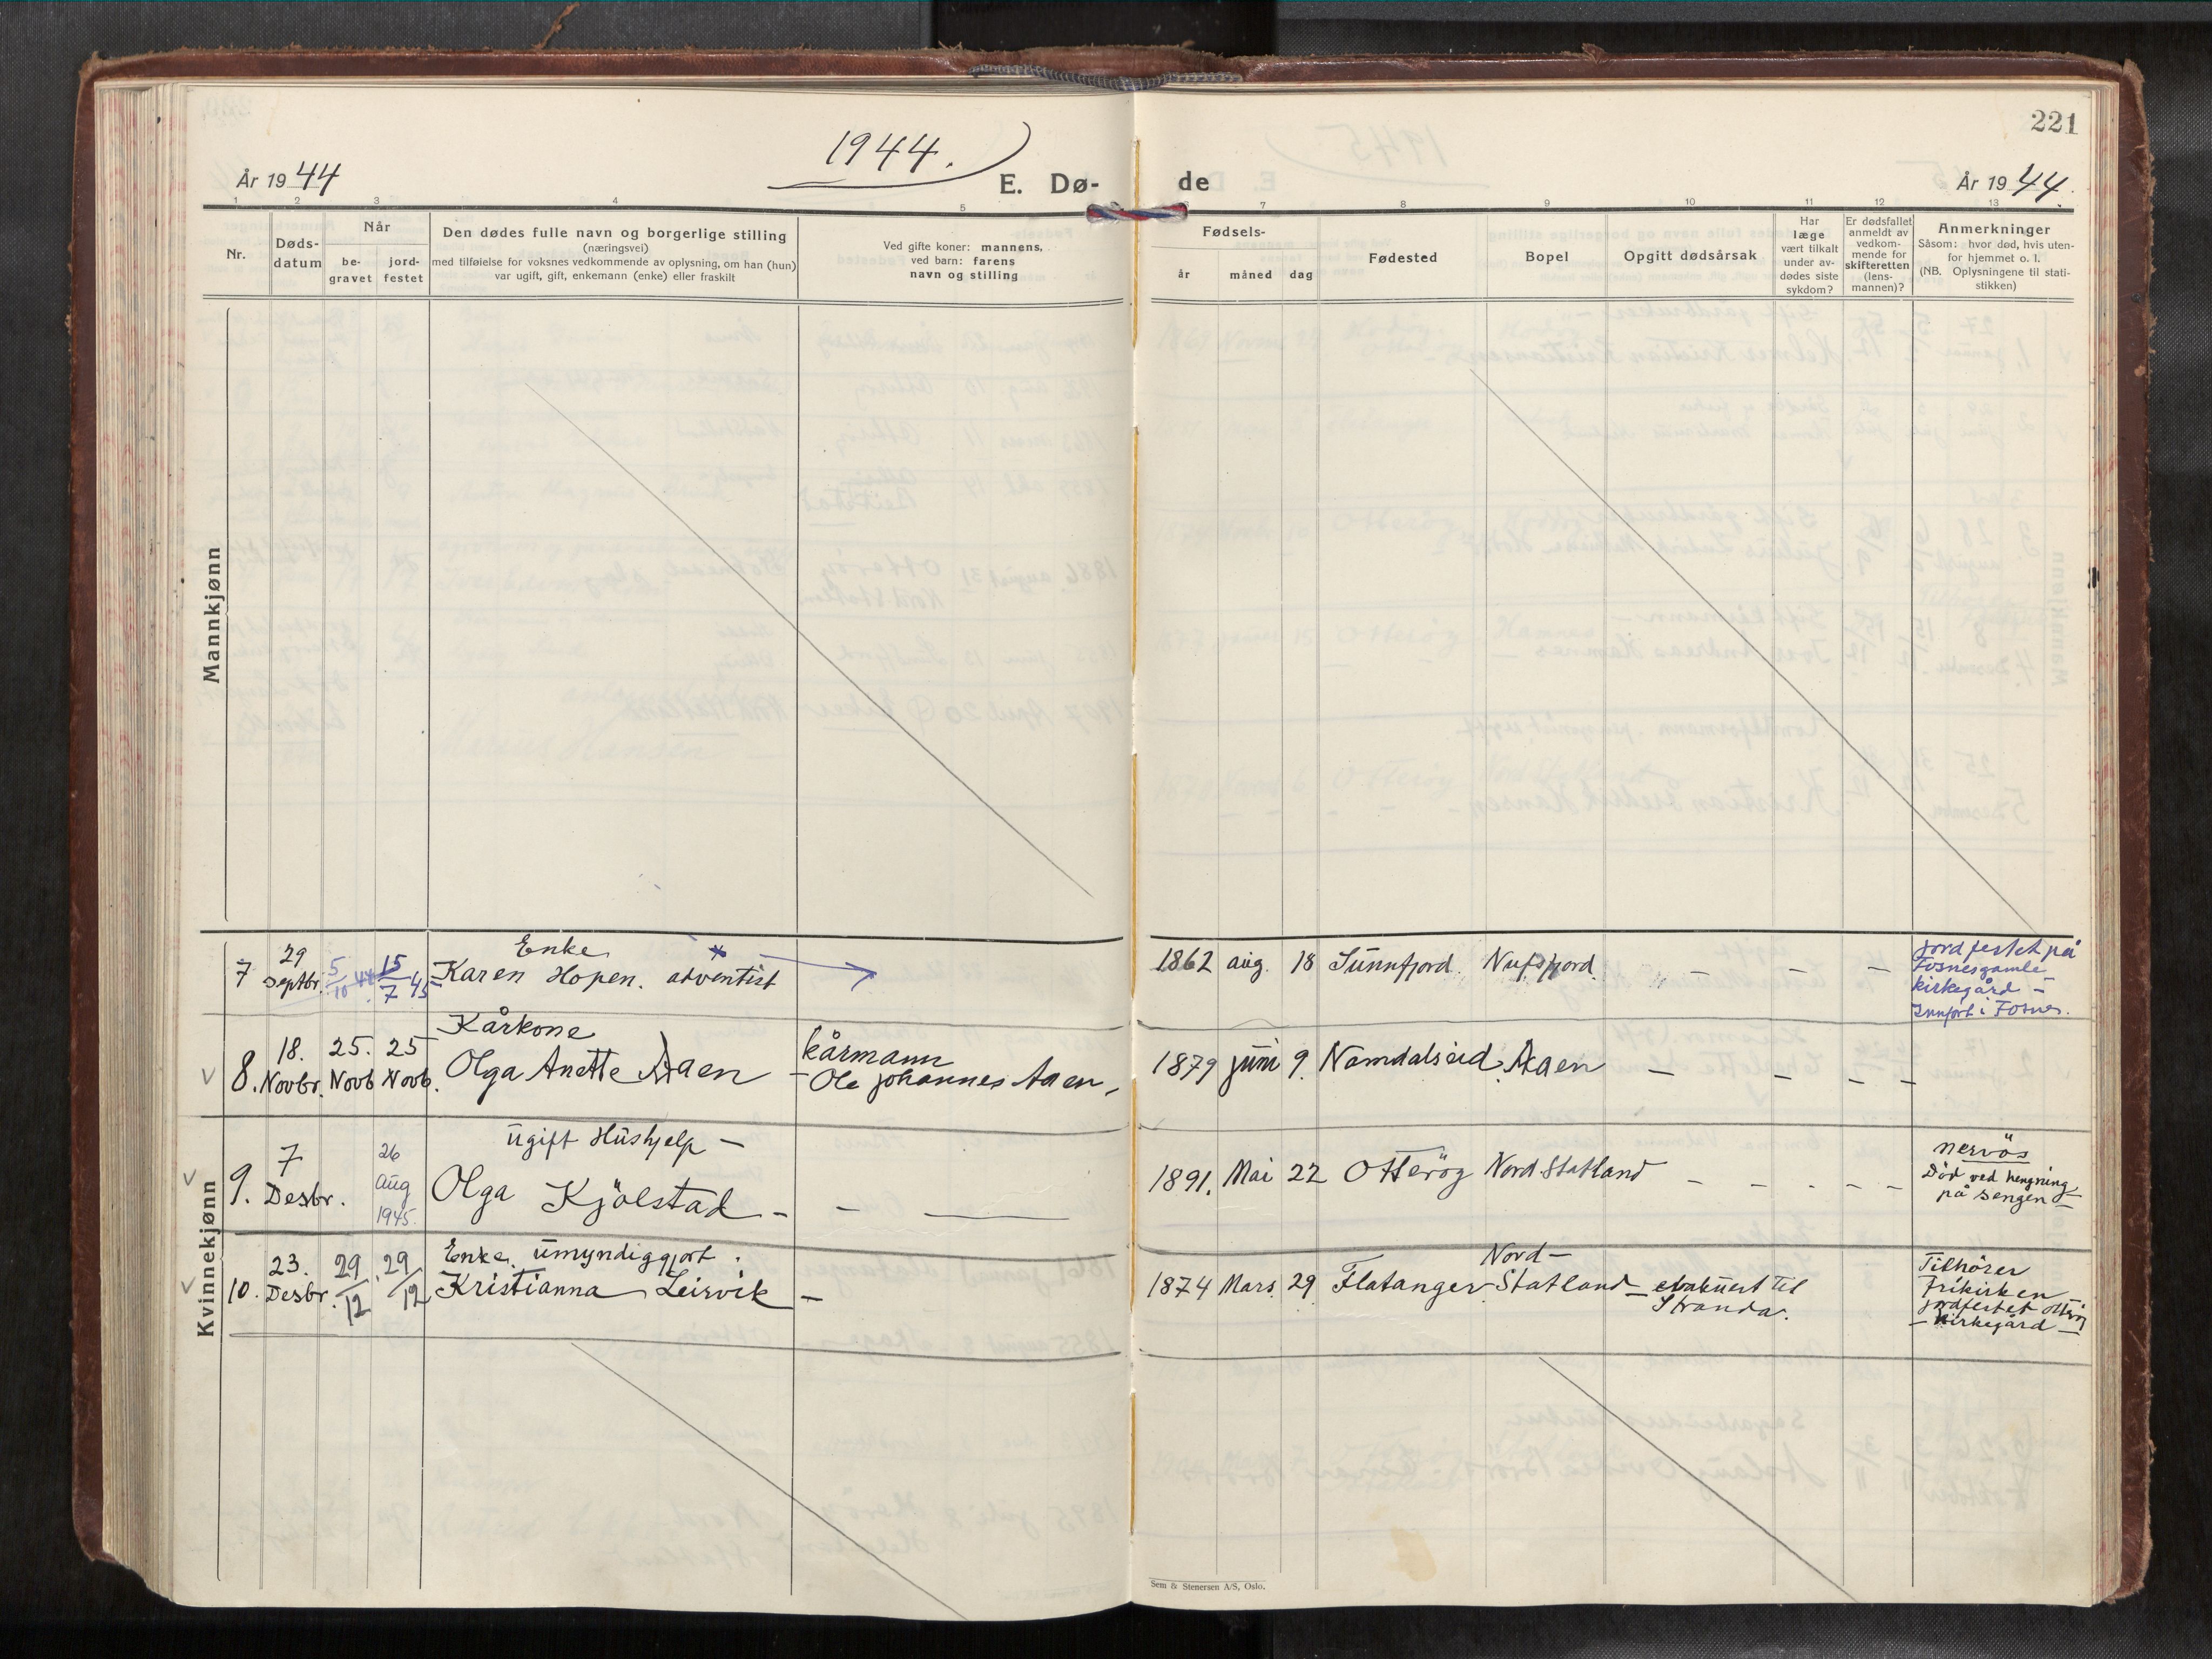 221
1944.
År 1944
E. Dø-
de
År 1944.
1 2 3 4 5
6 7 8 9 10 11 12 13
Nr.
Døds-
datum
Når
be-
gravet
jord-
festet
Den dødes fulle navn og borgerlige stilling
(næringsvei)
med tilføielse for voksnes vedkommende av oplysning, om han (hun)
var ugift, gift, enkemann (enke) eller fraskilt
Ved gifte koner: mannens,
ved barn: farens
navn og stilling
Fødsels-
år måned dag
Fødested
Bopel
Opgitt dødsårsak
Har
læge
vært tilkalt
under av-
dødes siste
sykdom?
Er dødsfallet
anmeldt av
vedkom-
mende for
skifteretten
(lens-
mannen)?
Anmerkninger
Såsom: hvor død, hvis uten-
for hjemmet o. l.
(NB. Oplysningene til stati-
stikken)
Mannkjønn
Kvinnekjønn
7
29
Septbr.
5/10 44
15/7 45
Enke
Karen Hopen. adventist
1862 aug. 18 Sunnfjord. Nufsfjord.
jordfestet på
Fosnesgamle
kirkegård –
Innført i Fosnes.
8.
18.
Novbr.
25.
Novb
25
Novb.
Kårkone
Olga Anette Aaen
kårmann
– Ole Johannes Aaen,
1879 juni 9. Namdalseid. Aaen
9.
7
Desbr.
26
aug
1945.
ugift Hushjelp –
Olga Kjölstad –
1891. Mai 22 Otteröy Nord-Statland
nervös
Död ved hengning
på sengen –
10.
23.
Desbr.
29/12
29/12
Enke. umyndiggjort.
Kristianna Leirvik –
1874 Mars. 29 Flatanger
Nord –
Statland – evakuert til
Stranda.
Tilhörer
Frikirken
jordfestet Otteröy
– kirkegård –
Sem & Stenersen A/S, Oslo.